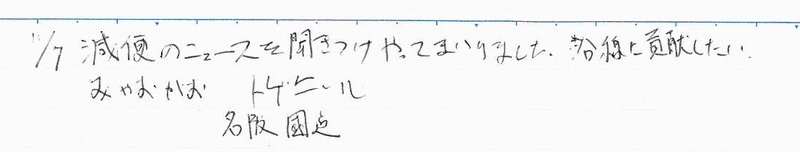 11/7 減便のニュースを聞きつけやってまいりました。沿線に貢献したい。
みやおかお トゲニール
名阪國道